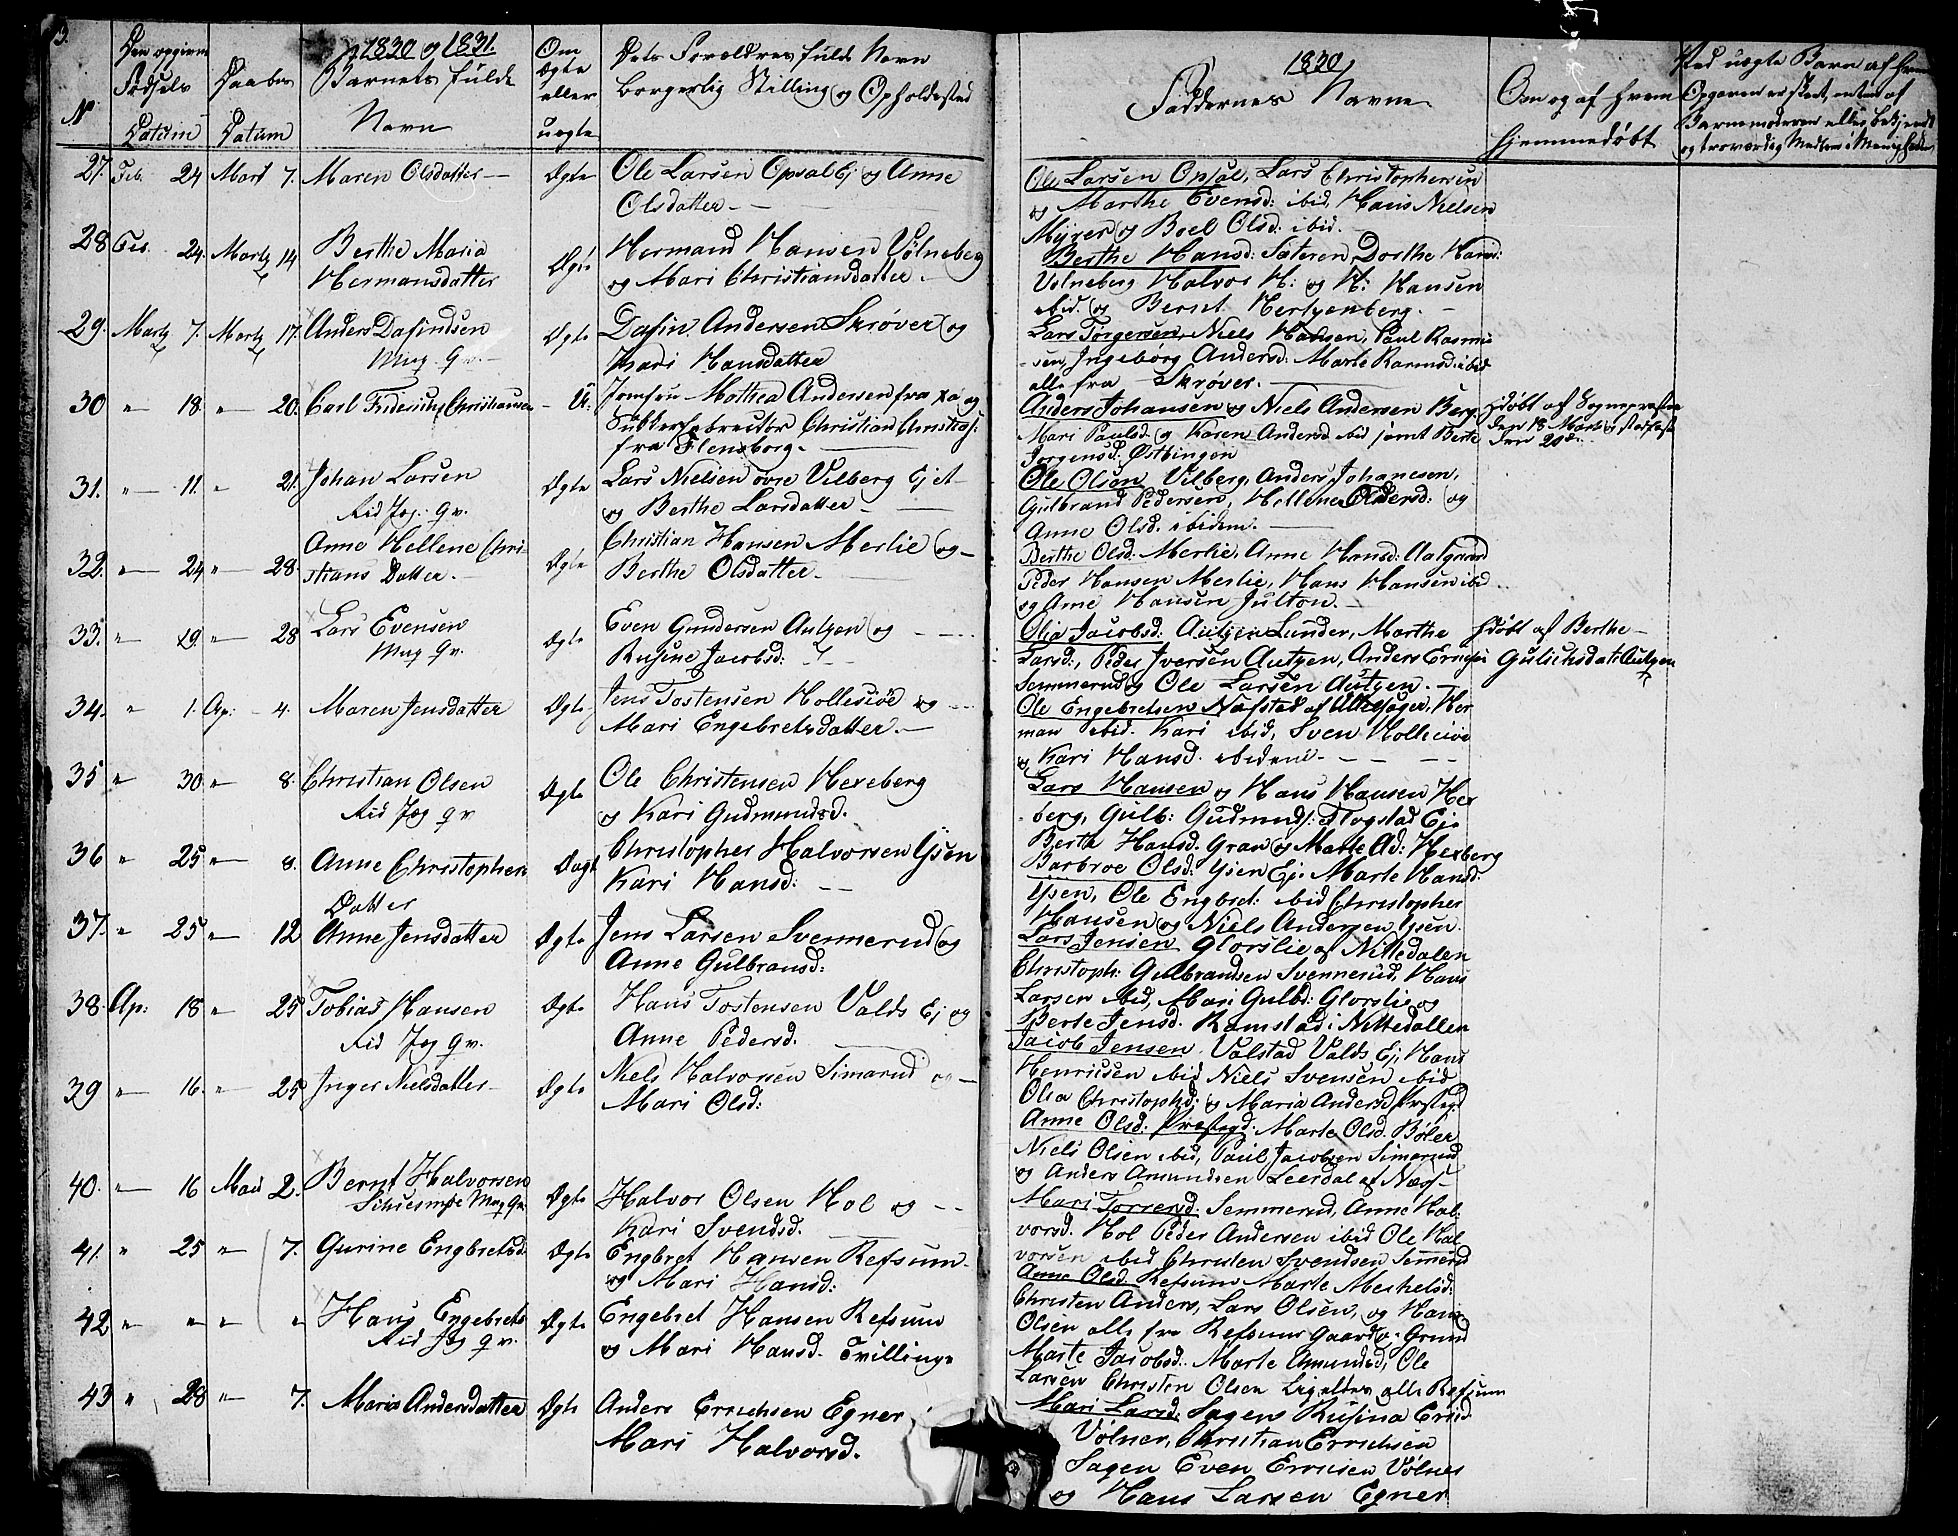 3.
1830 og 1831.
1830
No
Den opgivne Fødsels Datum
Daabens Datum
Barnets fulde Navn
Om ægte eller uægte
Dets Forældres fulde Navn
borgerlig Stilling og Opholdssted
Faddernes Navne
Om og af hvem hjemmedøbt
Ved uægte Barn af hvem
Opgaven er skeet, enten af
Barnemoderen eller bekjendt
og troværdig Medlem i Menigheden
27. Feb. 24 Mart 7. Maren Olsdatter Ægte Ole Larsen Opsal Ej og Anne
Olsdatter
Ole Larsen Opsal, Lars Christophersen
og Marthe Evensd: ibid, Hans Nielsen
Myrer og Boel Olsd: ibid.
28 Feb. 24. Marty 14 Berthe Maria
Hermansdatter
Ægte Hermand Hansen Vølneberg
og Mari Christiansdatter
Berthe Hansd: Sæteren, Dorthe Hansd:
Volneberg Halvor H: og H: Hansen
ibid. og Bernt Hertzenberg.
29. Marty 7. Marty 17. Anders Dafindsen
Mag. Qv.
Ægte Dafin Andersen Skrøver og
Kari Hansdatter
Lars Torgersen, Niels Hansen, Paul Rasmu-
sen, Ingeborg Andersd: Marte Rasmusd: ibid
alle fra Skrøver.
30 " 18. " 20. Carl Frderich Christiansen U. Jomfru Mathea Andersen fra
Christian
fra Flensborg.
Anders Johansen og Niels Andersen Berg.
Mari Paulsd. og Karen Andersd ibid samt Berte
Jørgensd. Østbingen
Hdøbt af Sognepresten
den 18 Marts
den 20de
31. " 11. " 21. Johan Larsen
Rid. Jæg. Qv.
Ægte Lars Nielsen øvre Vilberg Ej
og Berthe Larsdatter
Ole Olsen Vilberg, Anders Johanesen,
Gulbrand Pedersen, Hellene Andersd: og
Anne Olsd. ibidem.
32. " 24 " 28. Anne Hellene Chri-
stians Datter.
Ægte Christian Hansen Merlie og
Berthe Olsdatter
Berthe Olsd: Merlie, Anne Hansd: Aalgaard
Peder Hansen Merlie, Hans Hansen ibid
og Arne Hansen Julton.
33. " 29. " 28 Lars Evensen
Mag Qv.
Ægte Even Gundersen Autzen og
Rusine Jacobsd:
Olia Jacobsd: Autzen Lunder, Marthe
Larsd:, Peder Iversen Autzen, Anders Ericsen
Semmerud og Ole Larsen Autzen.
Hdøbt af Berthe
Gulichsdatr Autzen
34. " 1. Ap: 4. Maren Jensdatter Ægte Jens Tostensen Hollesiøe og
Mari Engebretsdatter.
Ole Engebretsen Nafstad af Ullensager, Her
man ibid. Kari ibid, Sven Hollesiøe
og Kari Hansd. ibidem.
35 " 30 " 8. Christian Olsen
Rid Jæg Qv
Ægte Ole Christensen Hexeberg
og Kari Gudmundsd.
Lars Hansen og Hans Hansen Hex
berg, Gulb: Gudmunds: Flogstad Eje
Berth Hansd. Gran og Marte Ad: Hexberg
36 " 25 " 8. Anne Christophers
Datter
Ægte Christopher Halvorsen Ysen
Kari Hansd:
Barbroe Olsd: Ysen Ej: Marte Hansd:
Ysen, Ole Engbret: ibid Christopher
Hansen og Niels Andersen Ysen.
37. " 25 " 12 Anne Jensdatter Ægte Jens Larsen Svennerud og
Anne Gulbransd:
Lars Jensen Glorslie af Nittedalen
Christoph: Gulbrandsen Svennerud, Hans
Larsen ibid, Mari Gulbd: Glorslie og
Berte Jensd. Ramstad i Nittedallen
38. Ap: 18 " 25 Tobias Hansen
Rid Jæg Qv.
Ægte Hans Tostensen Valds Ej og
Anne Pedersd.
Jacob Jensen Valstad Valds Ej Hans
Henricsen ibid Niels Svensen ibid
Olia Christophd: og Maria Andersd Prestegd
39 " 16. " 25 Inger Nielsdatter Ægte Niels Halvorsen Simarud og
Mari Olsd:
Anne Olsd: Prestegd: Marte Olsd. Bøler
Niels Olsen ibid, Paul Jacobsen Simerud
og Anders Amundsen Leerdal af Næss
40. " 16 Mai 2. Bernt Halvorsen
Mag Qv.
Ægte Halvor Olsen Hol og
Kari Svendsd.
Mari Torersd: Semmerud, Anne Hal-
vorsd. Hol Peder Andersen ibid Ole Hal
vorsen ibid Christen Svendsen Semerud
41. " 25 " 7. Gurine Engbretsd. Ægte Engbret Hansen Refsum
og Mari Hansd:
Anne Olsd Refsum Marte Mechelsd:
Christen Anders, Lars Olsen, og Hans
Olsen alle fra Refsum Gaard og Grund
42 " " " " Hans Engebrets
Rid Jæg Qv.
Ægte Engebret Hansen Refsum
og Mari Hansd. Tvillinge
Marte Jacobsd. Marte Amundsd, Ole
Larsen Christen Olsen Ligeledes alle Refsum
43 " 28 " 7. Maria Andersdatter Ægte Anders Errichsen Egner
Mari Halvorsd.
Mari Larsd: Sagen Rusina Ersd.
Vølner, Christian Errichsen
Sagen Even Ericsen Vølner
og Hans Larsen Egner